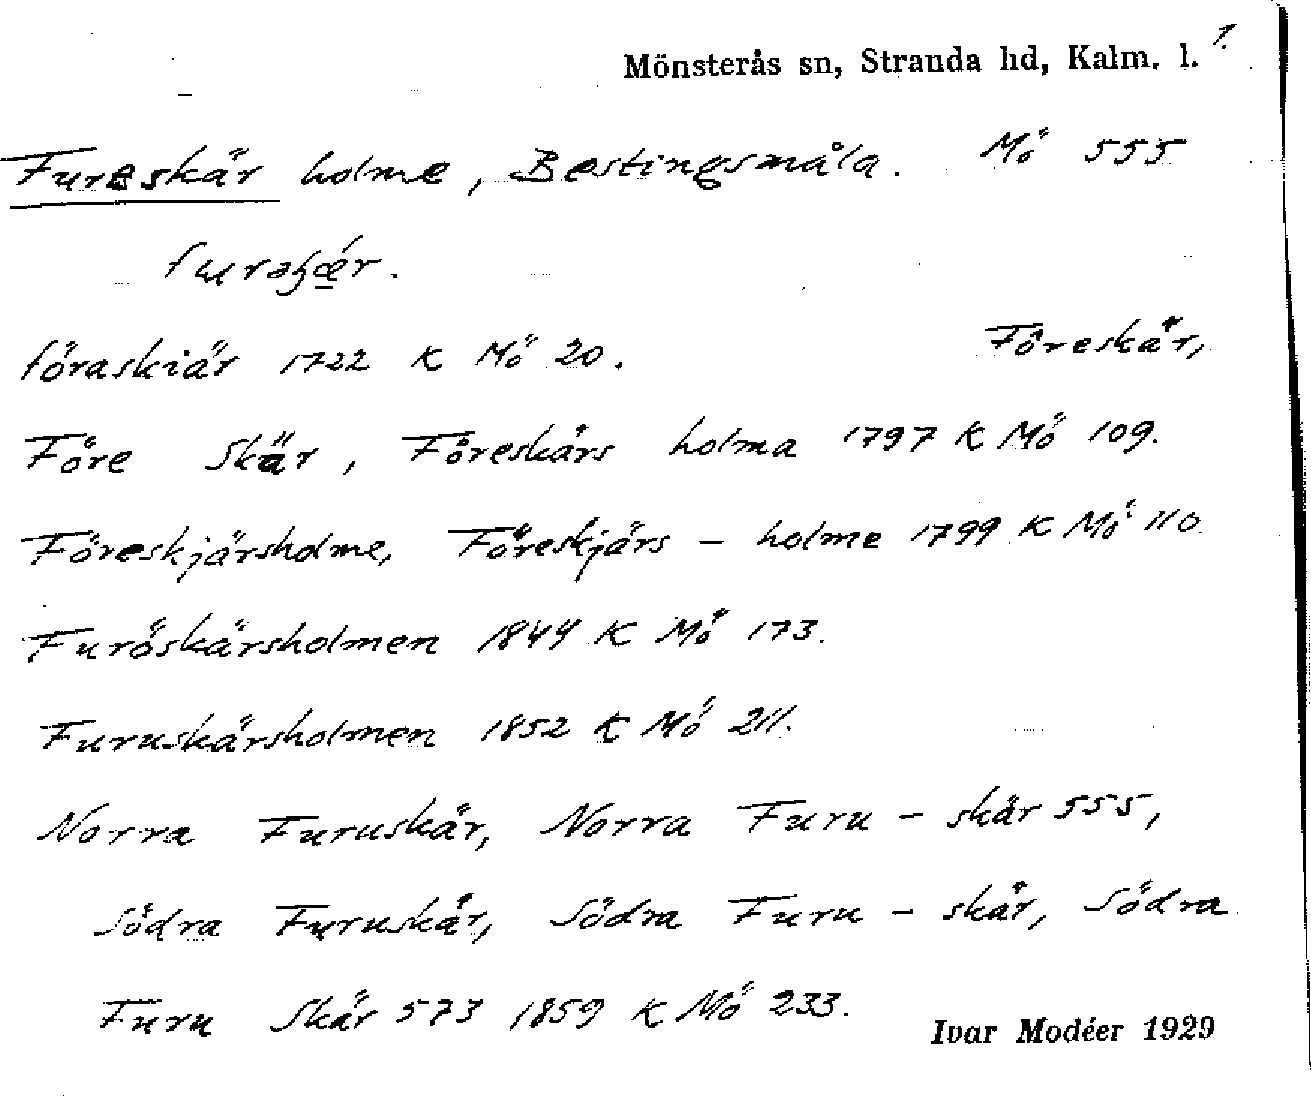 Mönsterås sn, Stranda hd, Kalm. l. 1.
Fureskär holme, Bestingsmåla. Mö 555
föraskiär 1722 K Mö 20. Föreskär,
Före Skär, Föreskärs holma 1797 K Mö 109.
Föreskjärsholme, Föreskjärs - holme 1799 K Mö 110
Furöskärsholmen 1844 K Mö 173.
Furuskärsholmen 1852 K Mö 211.
Norra Furuskär, Norra Furu - skär 555,
Södra Furuskär, Södra Furu - skär, Södra
Furu Skär 573 1859 K Mö 233.
Ivar Modéer 1929